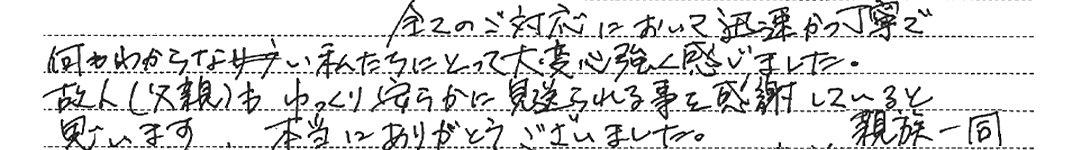 全てのご対応において迅速かつ丁寧で
何もわからない私たちにとって大変心強く感じました。
故人(父親)もゆっくり安らかに見送られる事を感謝していると
思います、本当にありがとうございました。 親族一同